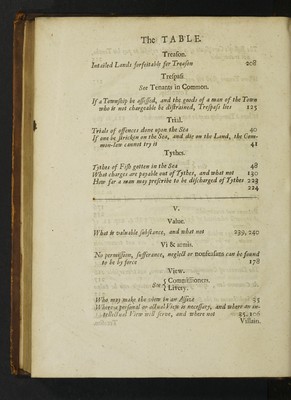 The TABLE.
Treason.
Intailed Lands forfeitable for Treason 208
Trespass
See Tenants in Common.
If a Township be assessed, and the goods of a man of the Town
who is not chargeable be distrained, Trespass lies 125
Trial.
Trials of offences done upon the Sea 40
If one be stricken on the Sea, and die on the Land, the Com-
mon-law cannot try it 41
Tythes.
Tythes of Fish gotten in the Sea 48
What charges are payable out of Tythes, and what not 130
How far a man may prescribe to be discharged of Tythes 223
224
V.
Value.
What is valuable substance, and what not 239, 240
Vi & armis.
No permission, sufferance, neglect or nonfesans can be found
to be by force 178
View.
See { Commissioners.
Livery.
Who may make the view in an Assize 35
Where a personal or actual View is necessary, and where an in-
tellectual View will serve, and where not 85, 106
Villain.